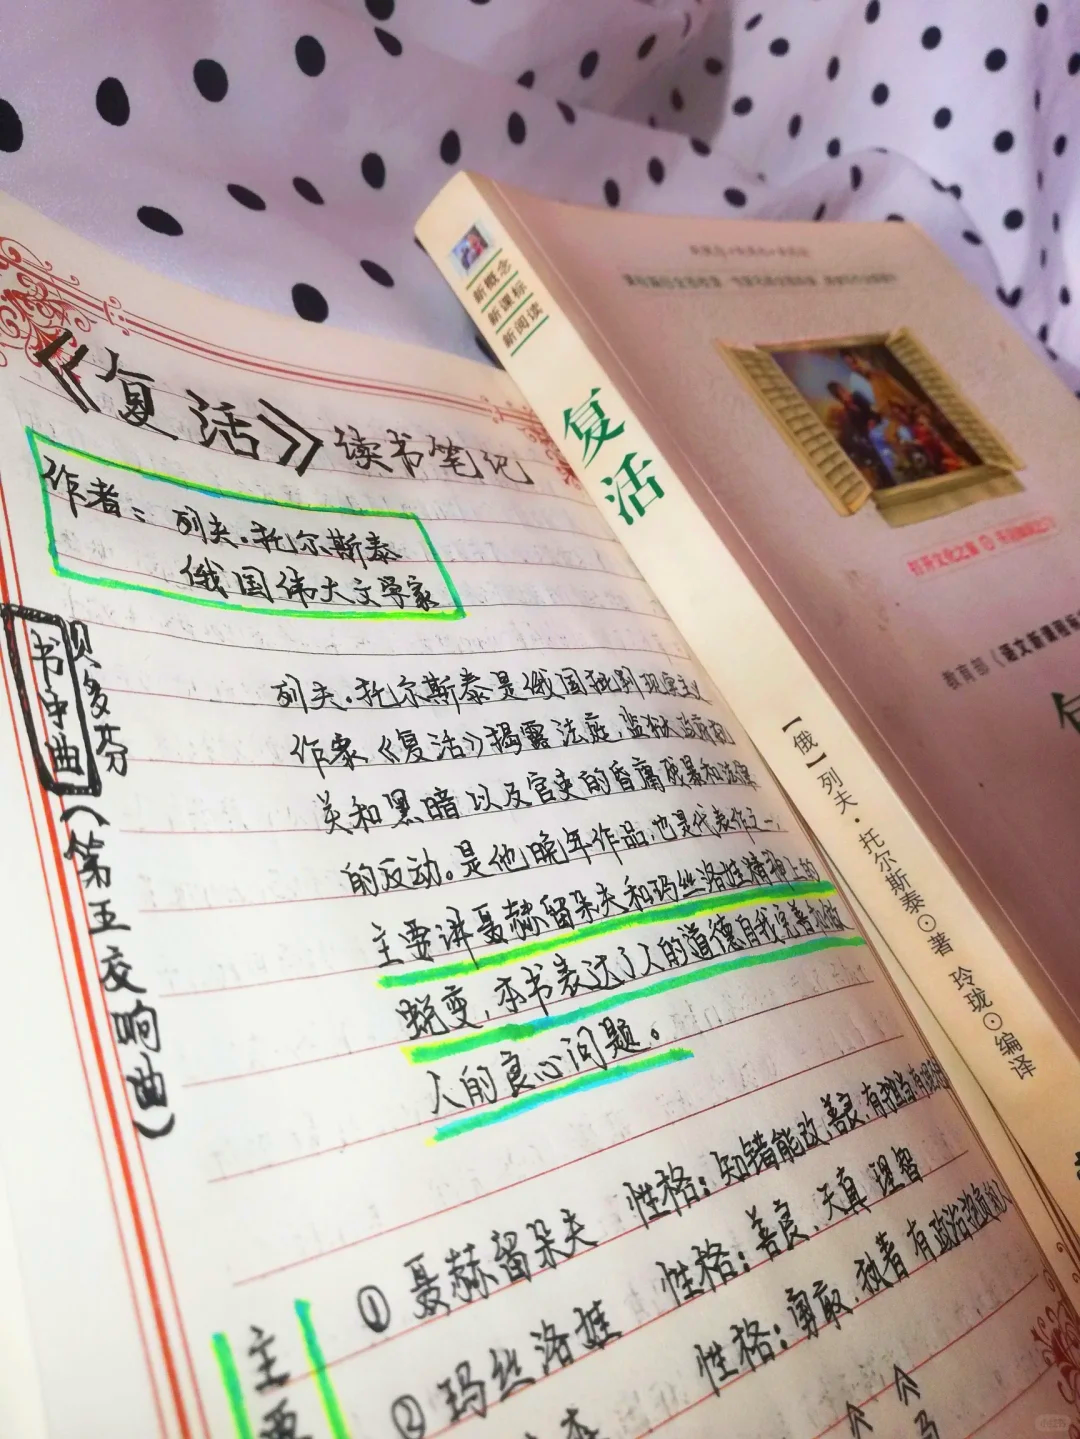 《复活》读书笔记
作者：列夫.托尔斯泰
俄国伟大文学家
书中曲
贝多芬
(第五交响曲)
列夫.托尔斯泰是俄国批判现实主义
作家《复活》揭露法庭、监狱、政府的
关和黑暗以及官吏的昏庸残暴和法律
的反动。是他晚年作品,也是代表作之一,
主要讲聂赫留朵夫和玛丝洛娃精神上的
蜕变,本书表达了人的道德自我完善和做
人的良心问题。
①聂赫留朵夫 性格:知错能改,善良,有担当,有
②玛丝洛娃 性格:善良、天真 理智
性格:勇敢.执着 有政治抱负的人
主要
新概念
新课标
新阅读
复活
【俄】列夫·托尔斯泰⊙著 玲珑⊙编译
打开文化之窗
教育部《语文新课程标